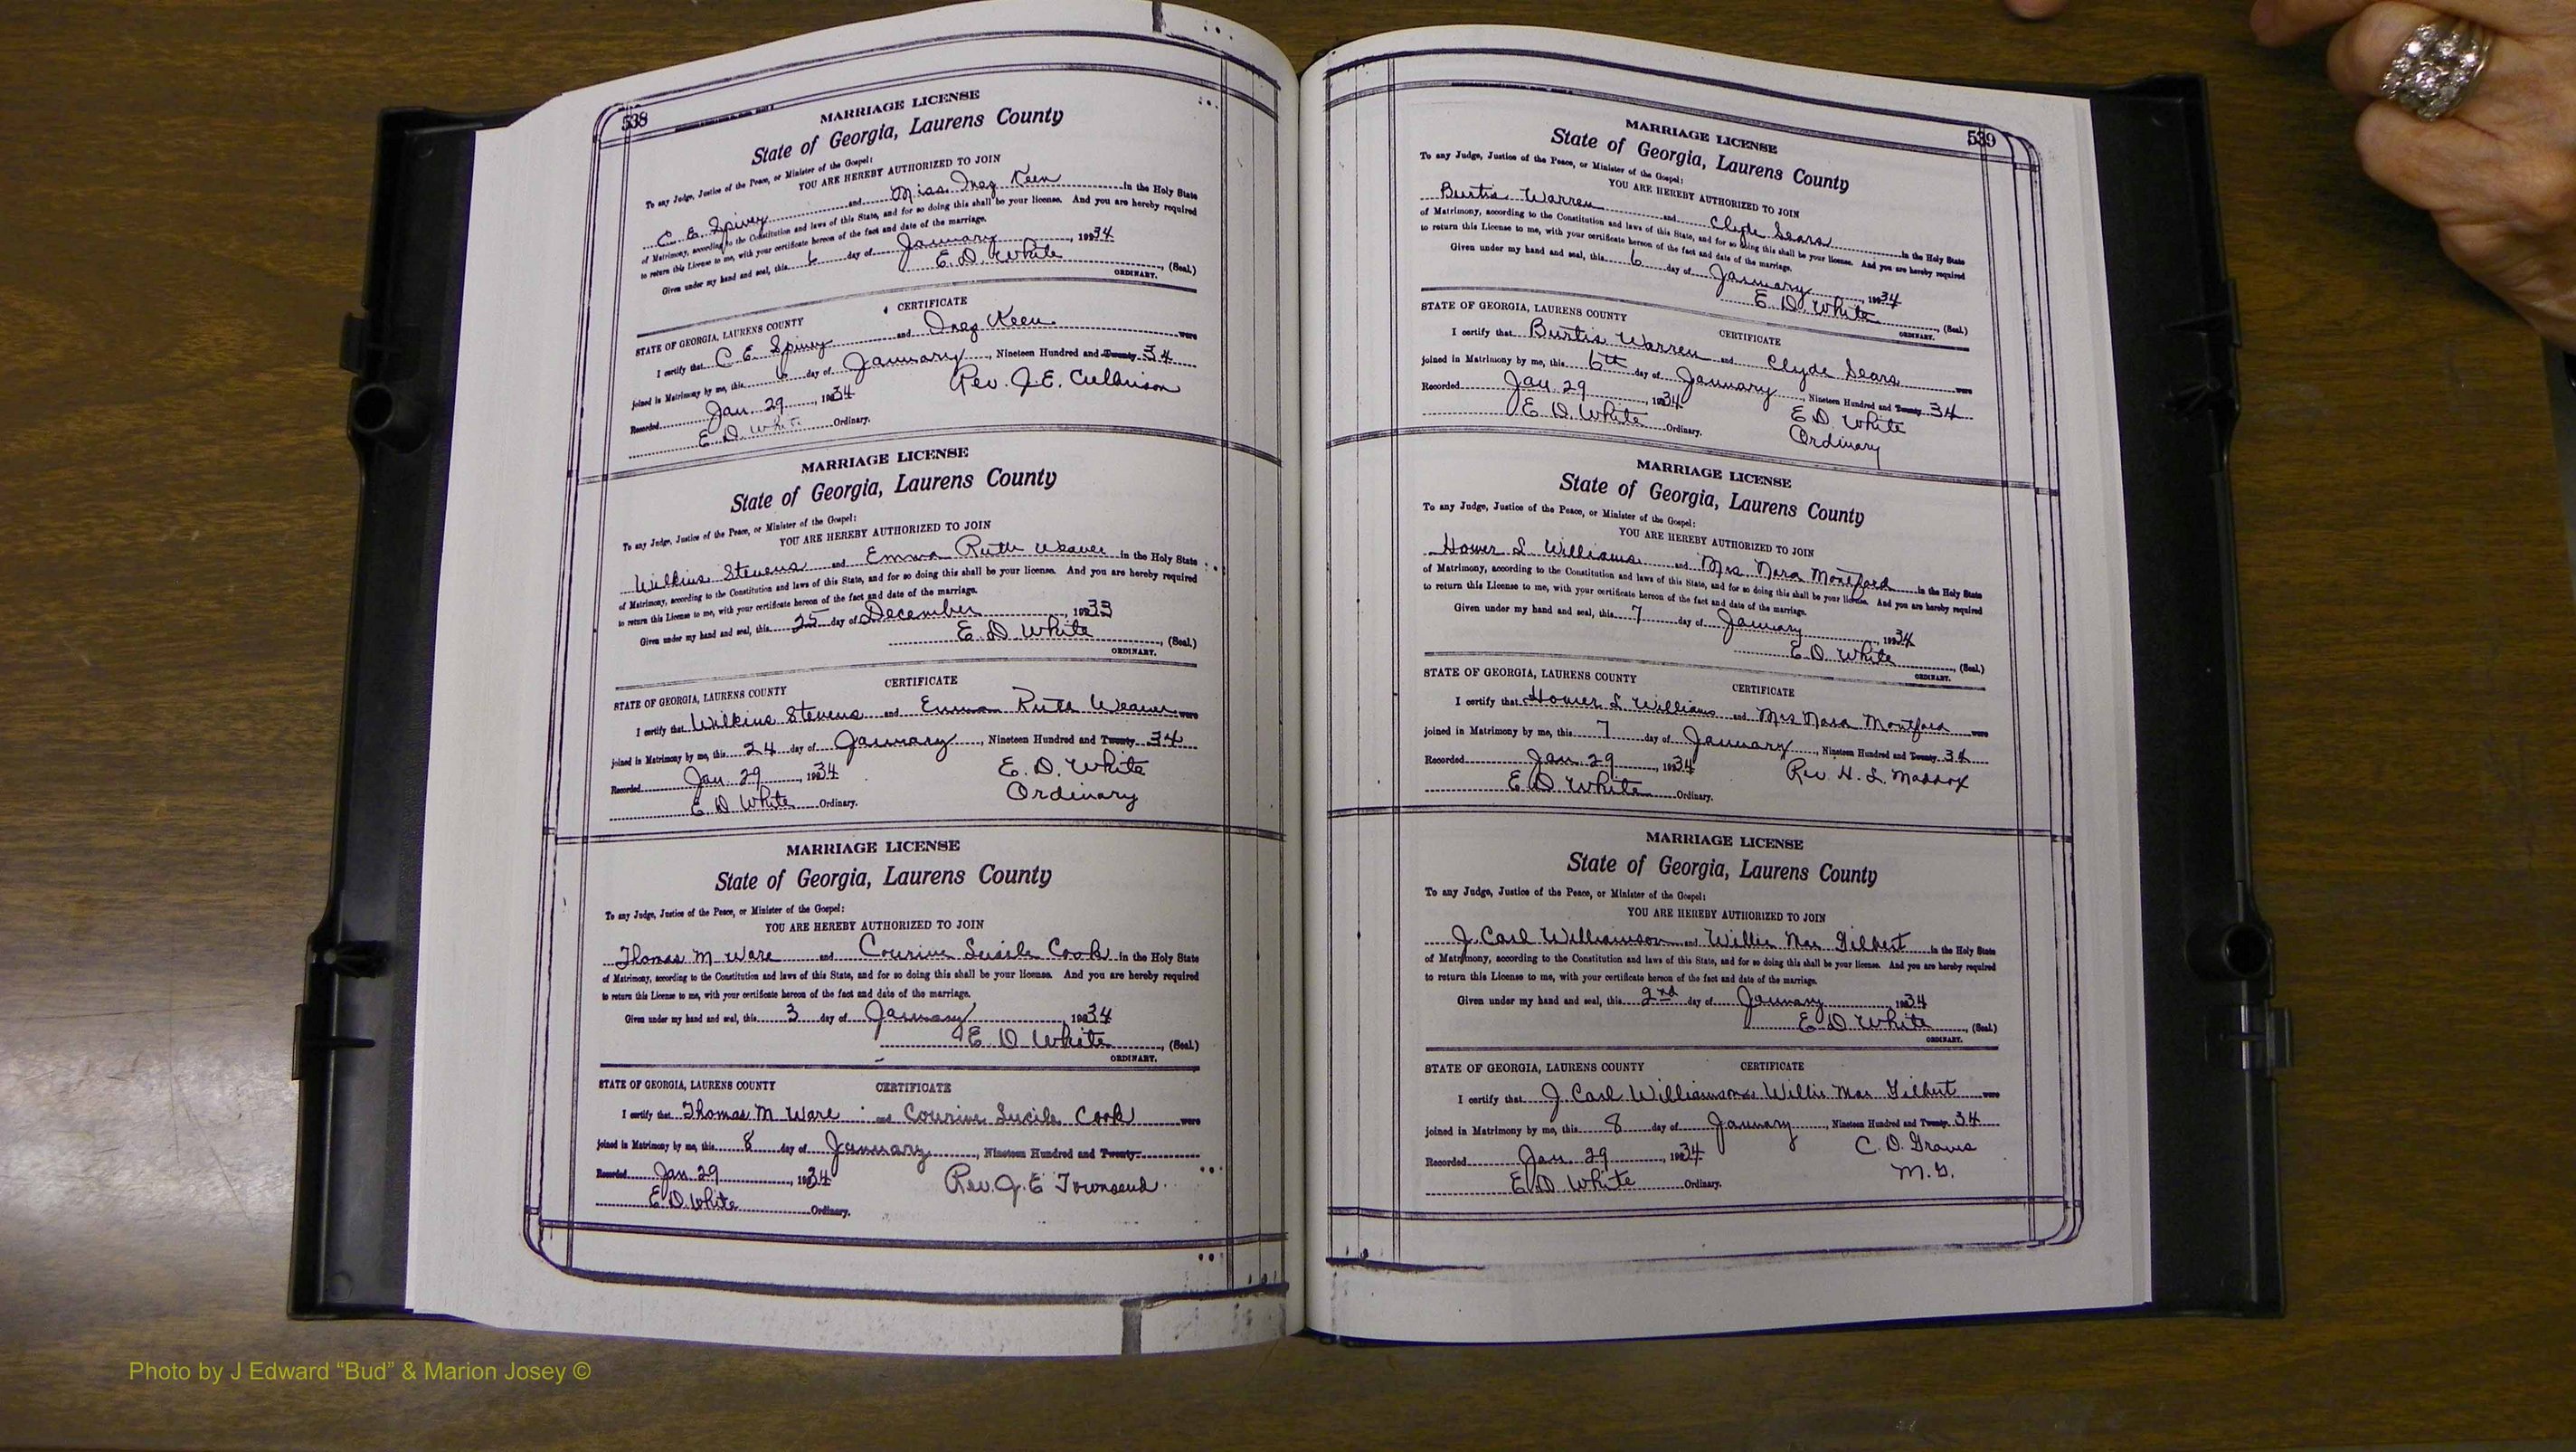 538
MARRIAGE LICENSE
State of Georgia, Laurens County
To any Judge, Justice of the Peace, or Minister of the Gospel:
YOU ARE HEREBY AUTHORIZED TO JOIN
C. E. Spivey and Miss Inez Keen in the Holy State
of Matrimony, according to the Constitution and laws of this State, and for so doing this shall be your license. And you are hereby required
to return this License to me, with your certificate hereon of the fact and date of the marriage.
Given under my hand and seal, this 6 day of January, 1934
E. D. White, (Seal.)
ORDINARY.
CERTIFICATE
STATE OF GEORGIA, LAURENS COUNTY
I certify that C. E. Spivey and Inez Keen were
joined in Matrimony by me, this 6 day of January, Nineteen Hundred and Twenty 34
Recorded Jan. 29, 1934 Rev. J. E.
E. D. White Ordinary.
MARRIAGE LICENSE
State of Georgia, Laurens County
To any Judge, Justice of the Peace, or Minister of the Gospel:
YOU ARE HEREBY AUTHORIZED TO JOIN
Wilkins Stevens and Emma Ruth Weaver in the Holy State
of Matrimony, according to the Constitution and laws of this State, and for so doing this shall be your license. And you are hereby required
to return this License to me, with your certificate hereon of the fact and date of the marriage.
Given under my hand and seal, this 25 day of December, 1933
E. D. White, (Seal.)
ORDINARY.
CERTIFICATE
STATE OF GEORGIA, LAURENS COUNTY
I certify that Wilkins Stevens and Emma Ruth Weaver were
joined in Matrimony by me, this 24 day of January, Nineteen Hundred and Twenty 34
Recorded Jan. 29, 1934 E. D. White
E. D. White Ordinary. Ordinary
MARRIAGE LICENSE
State of Georgia, Laurens County
To any Judge, Justice of the Peace, or Minister of the Gospel:
YOU ARE HEREBY AUTHORIZED TO JOIN
Thomas M Ware and Courine Lucile Cook in the Holy State
of Matrimony, according to the Constitution and laws of this State, and for so doing this shall be your license. And you are hereby required
to return this License to me, with your certificate hereon of the fact and date of the marriage.
Given under my hand and seal, this 3 day of January, 1934
E. D. White, (Seal.)
ORDINARY.
STATE OF GEORGIA, LAURENS COUNTY CERTIFICATE
I certify that Thomas M Ware and Courine Lucile Cook were
joined in Matrimony by me, this 8 day of January, Nineteen Hundred and Twenty
Recorded Jan 29, 1934 Rev. J. E Townsend
E. D. White Ordinary.
539
MARRIAGE LICENSE
State of Georgia, Laurens County
To any Judge, Justice of the Peace, or Minister of the Gospel:
YOU ARE HEREBY AUTHORIZED TO JOIN
Burtis Warren and Clyde Sears in the Holy State
of Matrimony, according to the Constitution and laws of this State, and for so doing this shall be your license. And you are hereby required
to return this License to me, with your certificate hereon of the fact and date of the marriage.
Given under my hand and seal, this 6 day of January, 1934
E. D. White, (Seal.)
ORDINARY.
STATE OF GEORGIA, LAURENS COUNTY CERTIFICATE
I certify that Burtis Warren and Clyde Sears were
joined in Matrimony by me, this 6th day of January, Nineteen Hundred and Twenty 34
Recorded Jan. 29, 1934 E. D. White
E. D. White Ordinary. Ordinary
MARRIAGE LICENSE
State of Georgia, Laurens County
To any Judge, Justice of the Peace, or Minister of the Gospel:
YOU ARE HEREBY AUTHORIZED TO JOIN
Homer L Williams and Mrs Nora Montford in the Holy State
of Matrimony, according to the Constitution and laws of this State, and for so doing this shall be your license. And you are hereby required
to return this License to me, with your certificate hereon of the fact and date of the marriage.
Given under my hand and seal, this 7 day of January, 1934
E. D. White, (Seal.)
ORDINARY.
STATE OF GEORGIA, LAURENS COUNTY CERTIFICATE
I certify that Homer L Williams and Mrs Nora Montford were
joined in Matrimony by me, this 7 day of January, Nineteen Hundred and Twenty 34
Recorded Jan. 29, 1934 Rev. H. L. Maddox
E. D. White Ordinary.
MARRIAGE LICENSE
State of Georgia, Laurens County
To any Judge, Justice of the Peace, or Minister of the Gospel:
YOU ARE HEREBY AUTHORIZED TO JOIN
J. Carl Williamson and Willie Mae Gilbert in the Holy State
of Matrimony, according to the Constitution and laws of this State, and for so doing this shall be your license. And you are hereby required
to return this License to me, with your certificate hereon of the fact and date of the marriage.
Given under my hand and seal, this 2nd day of January, 1934
E. D. White, (Seal.)
ORDINARY.
STATE OF GEORGIA, LAURENS COUNTY CERTIFICATE
I certify that J. Carl Williamson and Willie Mae Gilbert were
joined in Matrimony by me, this 8 day of January, Nineteen Hundred and Twenty 34
Recorded Jan. 29, 1934 C. D. Graves
E. D. White Ordinary. M. G.
Photo by J Edward “Bud” & Marion Josey ©